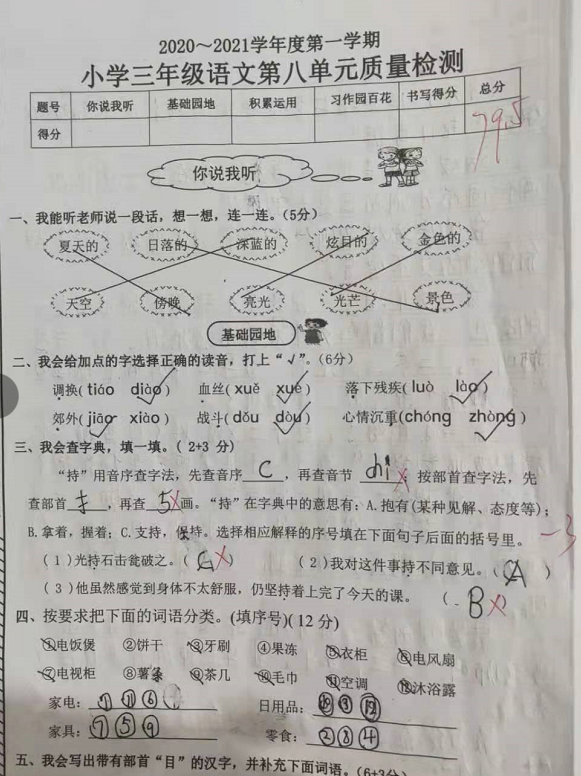 2020～2021学年度第一学期
小学三年级语文第八单元质量检测
题号 你说我听 基础园地 积累运用 习作园百花 书写得分 总分
得分 79.5
你说我听
一、我能听老师说一段话，想一想，连一连。（5分）
夏天的 日落的 深蓝的 炫目的 金色的
天空 傍晚 亮光 光芒 景色
基础园地
二、我会给加点的字选择正确的读音，打上“√”。（6分）
调换( tiáo diào ) 血丝( xuě xuè ) 落下残疾( luò lào )
郊外( jiāo xiào ) 战斗( dǒu dòu ) 心情沉重(chóng zhòng )
三、我会查字典，填一填。( 2+3 分)
“持”用音序查字法，先查音序 C ，再查音节 chi ；按部首查字法，先
查部首 扌 ，再查 5 画。“持”在字典中的意思有：A.抱有(某种见解、态度等)；
B.拿着，握着；C.支持，保持。选择相应解释的序号填在下面句子后面的括号里。
-3
( 1 )光持石击瓮破之。( C ) ( 2 )我对这件事持不同意见。( A )
( 3 )他虽然感觉到身体不太舒服，仍坚持着上完了今天的课。 ( B )
四、按要求把下面的词语分类。(填序号)( 12 分)
①电饭煲 ②饼干 ③牙刷 ④果冻 ⑤衣柜 ⑥电风扇
⑦电视柜 ⑧薯条 ⑨茶几 ⑩毛巾 ⑪空调 ⑫沐浴露
家电： ① ⑪ ⑥ 日用品： ⑩ ③ ⑫
家具： ⑦ ⑤ ⑨ 零食： ② ⑧ ④
五、我会写出带有部首“目”的汉字，并补充下面词语。（6+3分）